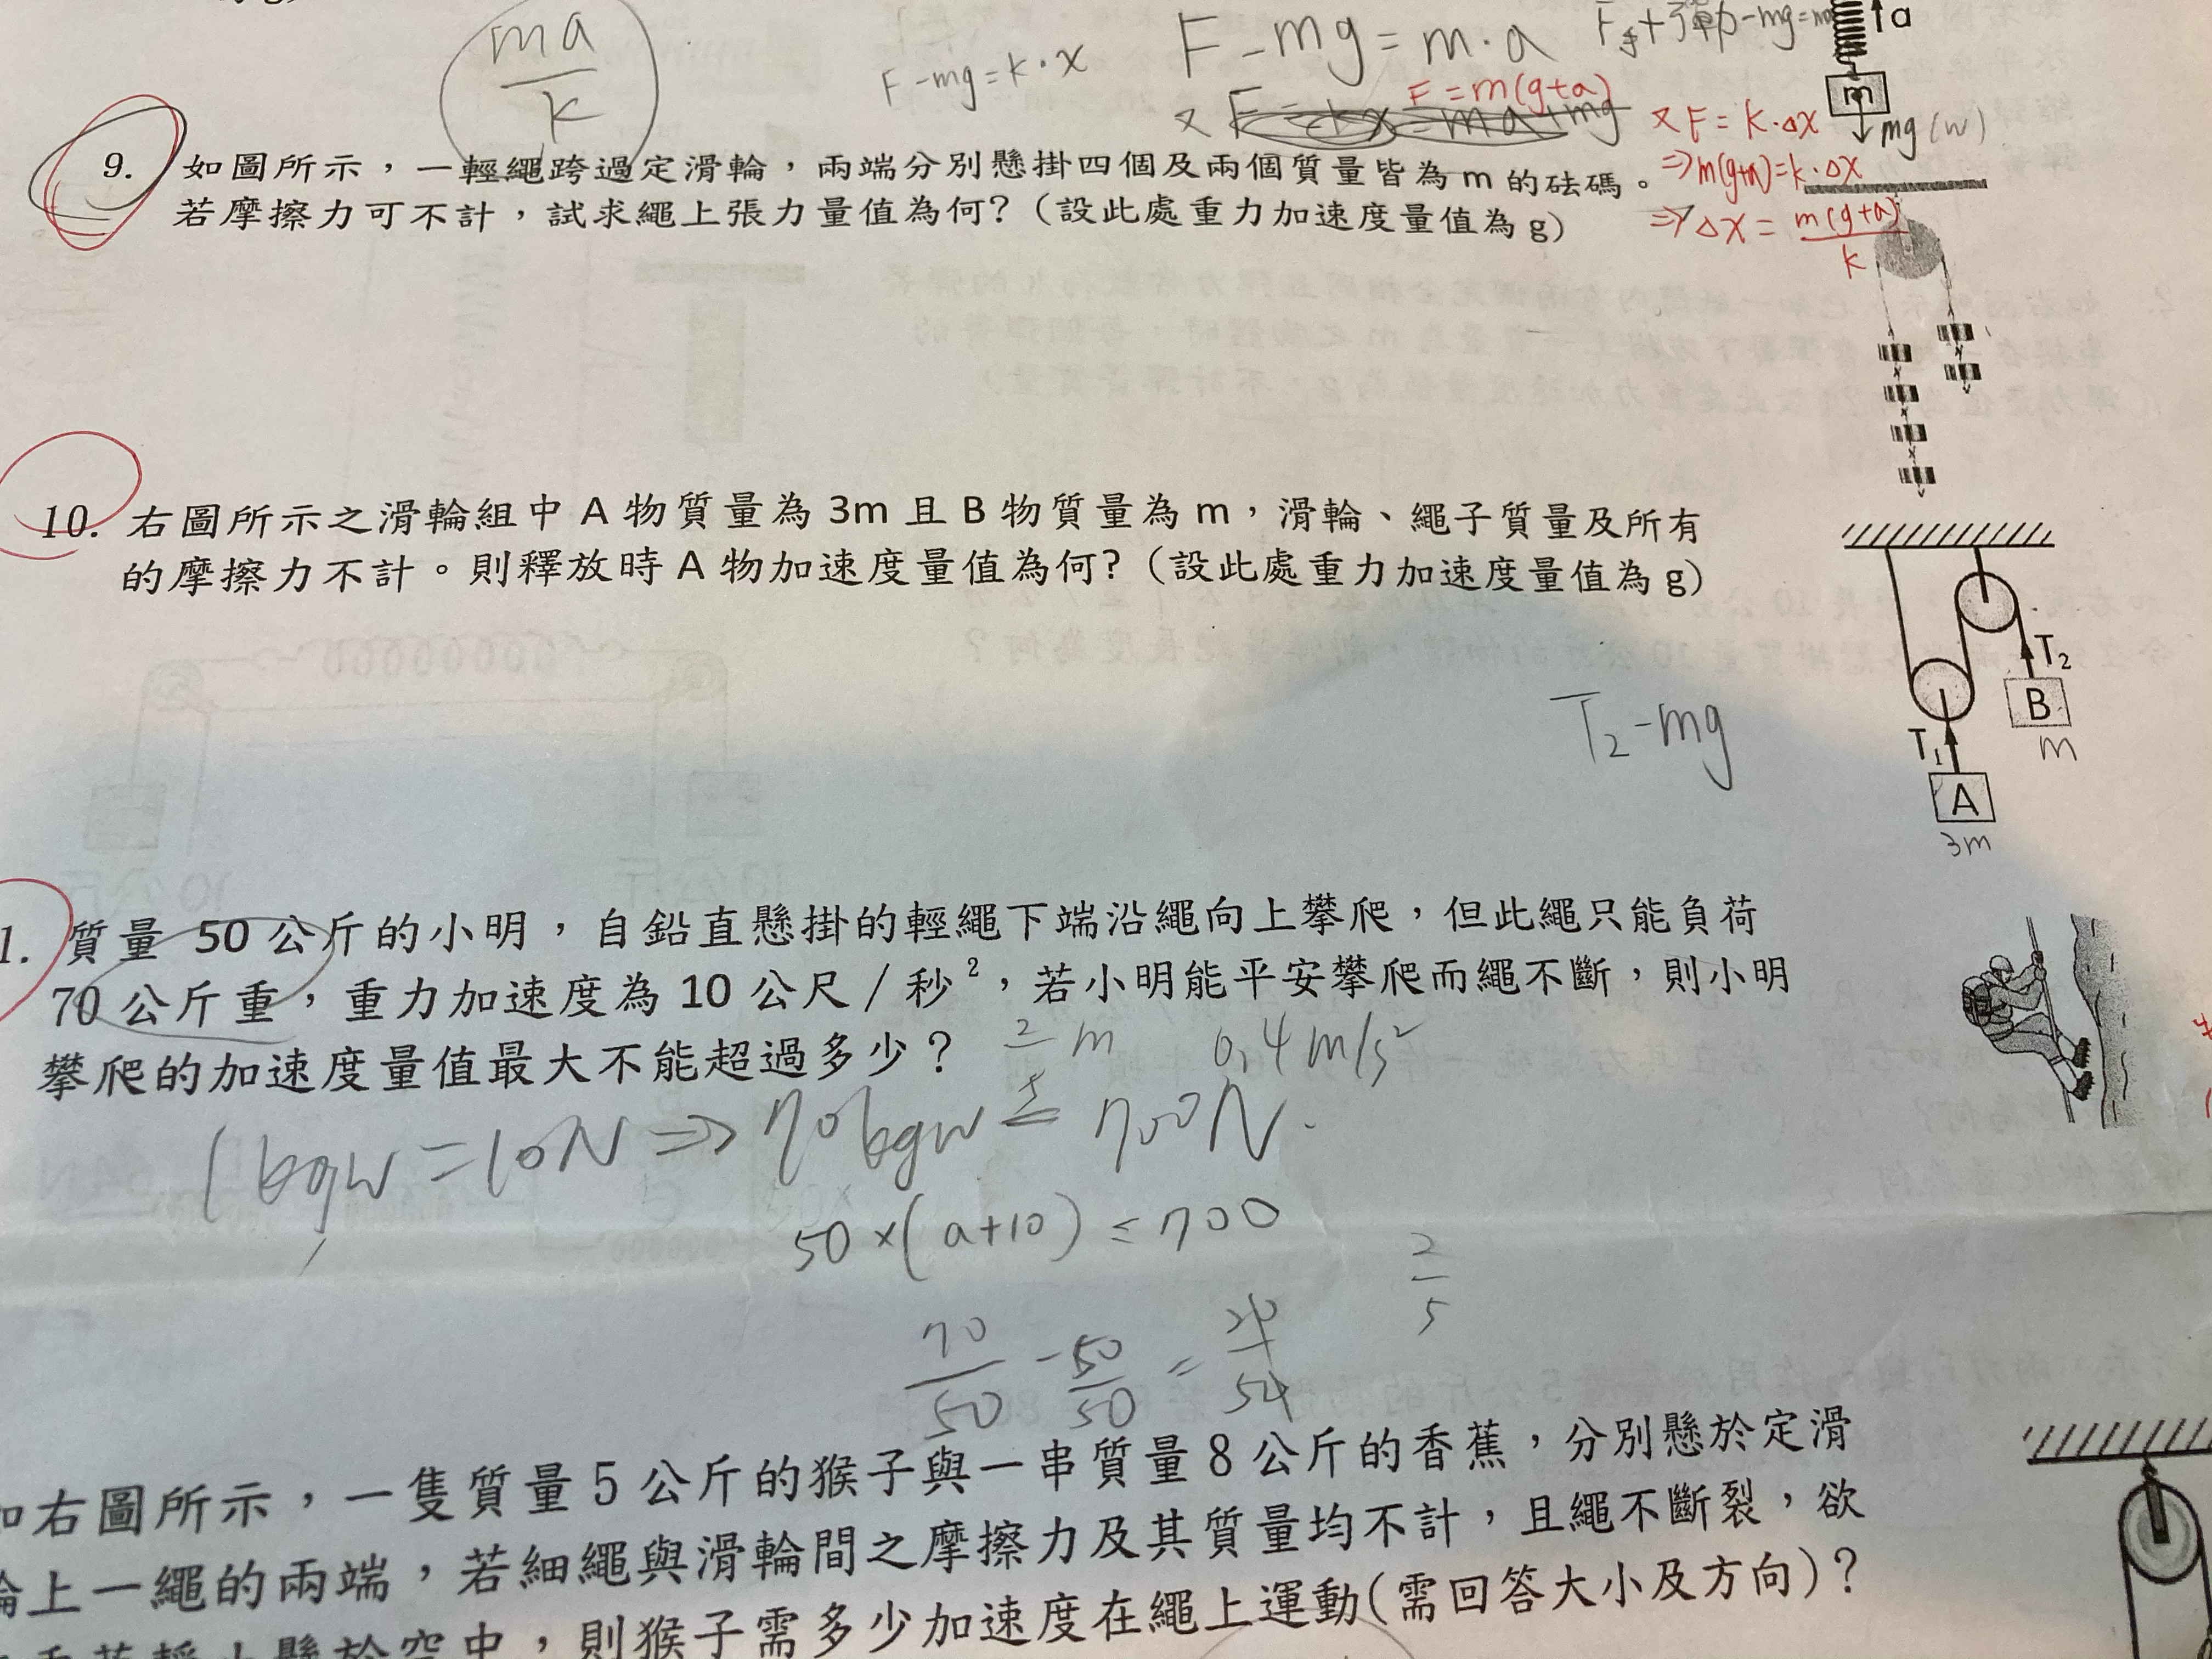 ma
k
F-mg=k·x
F-mg=m·a
a
m
mg(w)
F=m(g+a)
又F=k·Δx
⇒m(g+a)=k·Δx
⇒Δx=m(g+a)
k
9. 如圖所示，一輕繩跨過定滑輪，兩端分別懸掛四個及兩個質量皆為m的砝碼。
若摩擦力可不計，試求繩上張力量值為何?（設此處重力加速度量值為g）
10. 右圖所示之滑輪組中A物質量為3m且B物質量為m，滑輪、繩子質量及所有
的摩擦力不計。則釋放時A物加速度量值為何?（設此處重力加速度量值為g）
T2-mg
T2
B
m
T1
A
3m
1. 質量 50公斤的小明，自鉛直懸掛的輕繩下端沿繩向上攀爬，但此繩只能負荷
70公斤重，重力加速度為10公尺/秒²，若小明能平安攀爬而繩不斷，則小明
攀爬的加速度量值最大不能超過多少？
0.4m/s²
1kgw=10N⇒70kgw=700N.
50×(a+10)≤700
2
5
70 - 50 =
50 50
如右圖所示，一隻質量5公斤的猴子與一串質量8公斤的香蕉，分別懸於定滑
輪上一繩的兩端，若細繩與滑輪間之摩擦力及其質量均不計，且繩不斷裂，欲
懸於空中，則猴子需多少加速度在繩上運動(需回答大小及方向)？